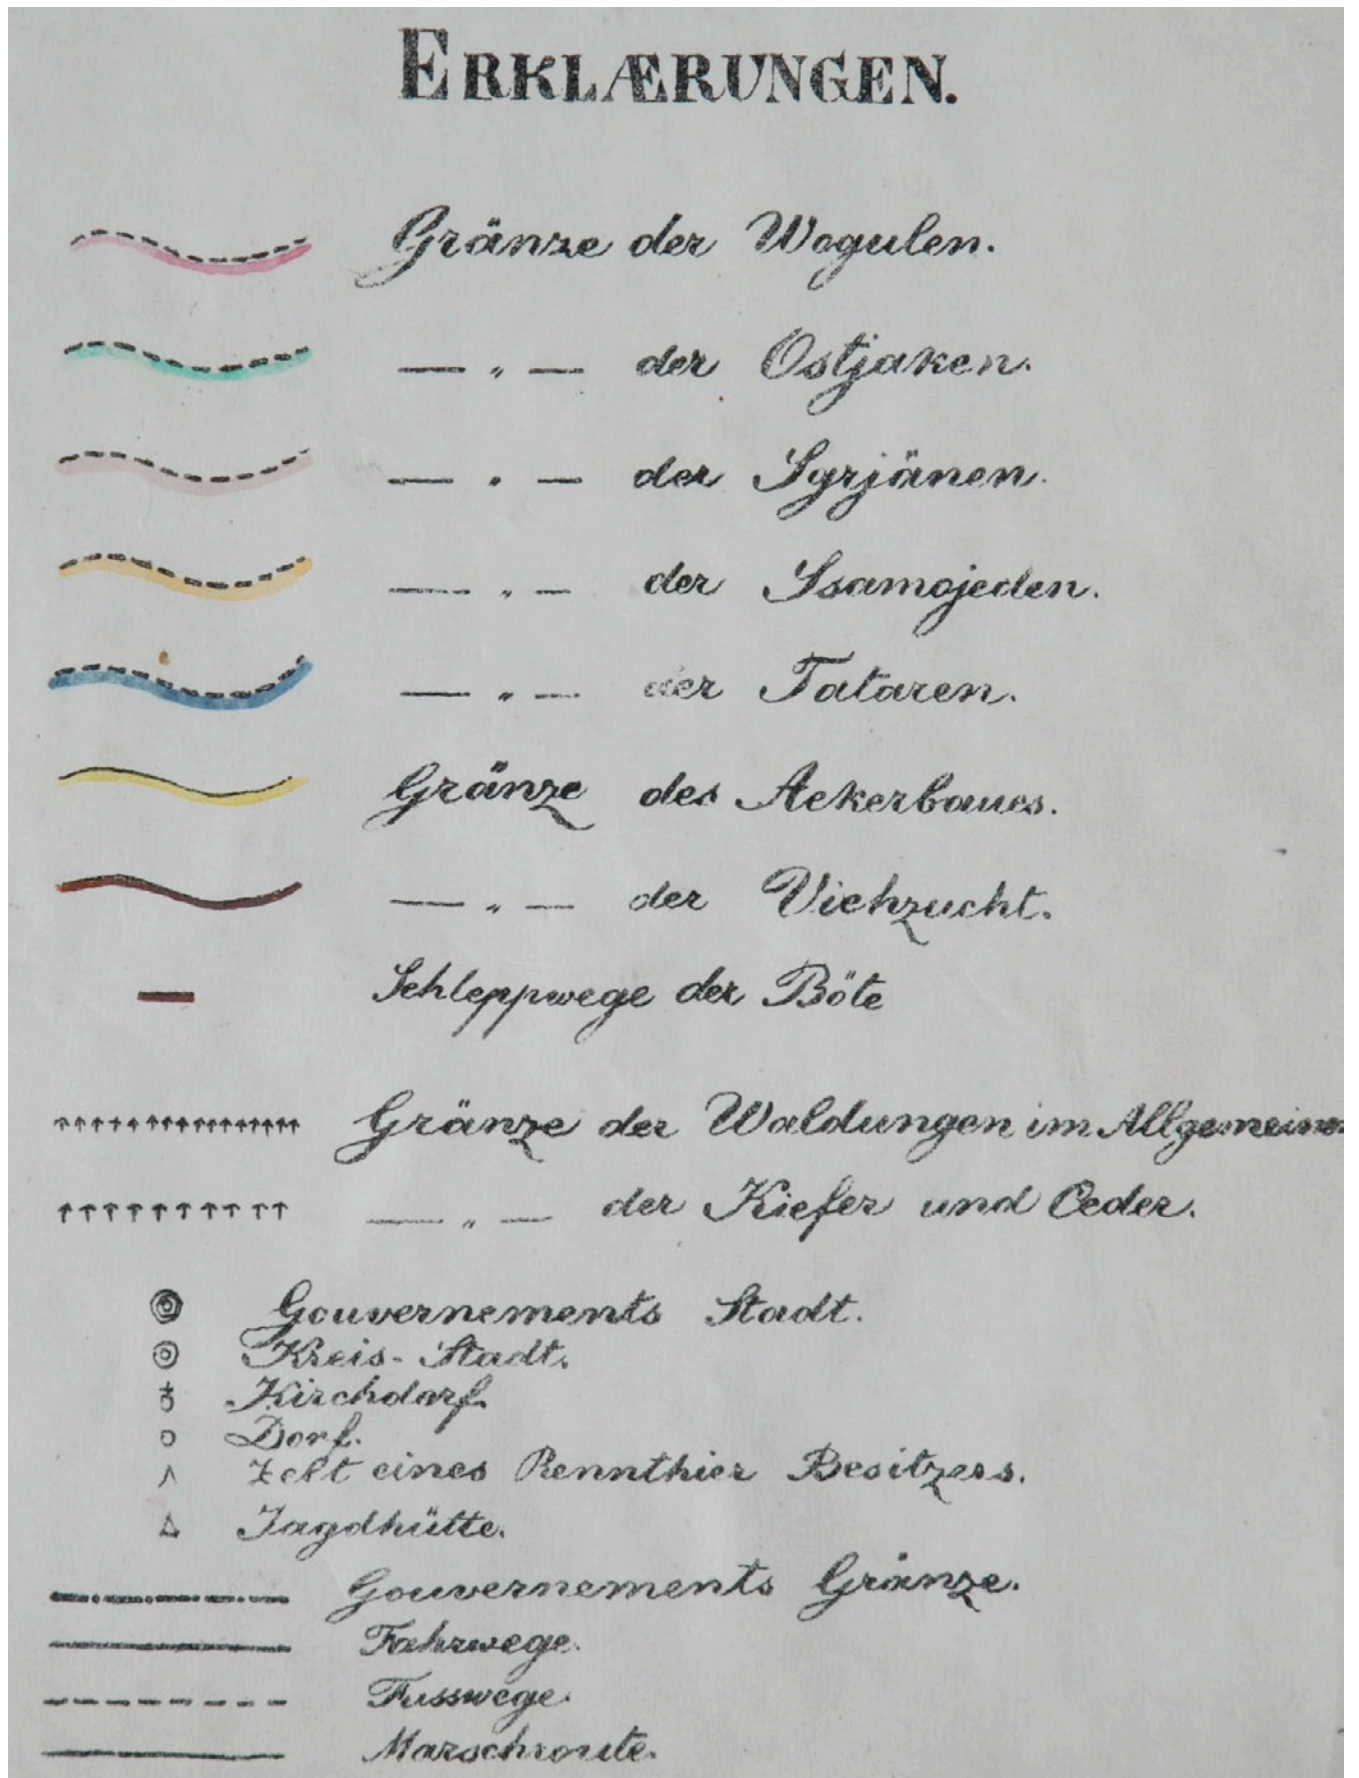 ERKLÆRUNGEN.
Gränze der Wogulen.
— „ — der Ostjaken.
— „ — der Syrjänen.
— „ — der Ssamojeden.
— „ — der Tataren.
Gränze des Ackerbaues.
— „ — der Viehzucht.
Schleppwege der Böte
Gränze der Waldungen im Allgemeinen
— „ — der Kiefer und Ceder.
Gouvernements Stadt.
Kreis-Stadt.
Kirchdorf.
Dorf.
Zelt eines Rennthier Besitzers.
Jagdhütte.
Gouvernements Gränze.
Fahrwege.
Fusswege.
Marschroute.